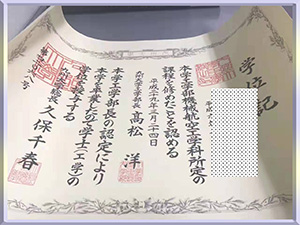 学位記
本学工学部機械航空工学科所定の
課程を修めたことを認める
平成二十九年三月二十四日
九州大学工学部長 髙松 洋
本学工学部長の認定により
本学を卒業した学士(工学)の
学位を授与する
九州大学総長 久保千春